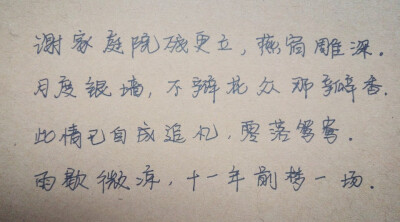 谢家庭院残更立，燕宿雕梁。
月度银墙，不辨花丛那辨香。
此情已自成追忆，零落鸳鸯。
雨歇微凉，十一年前梦一场。